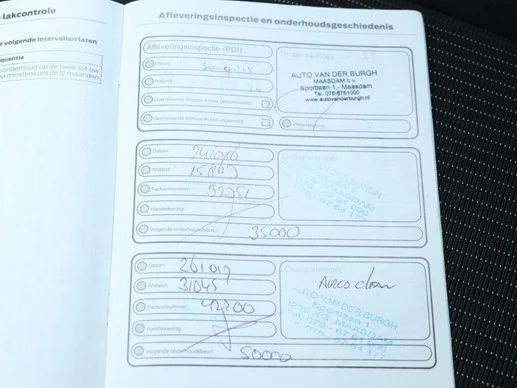 lakcontrole
e volgende intervallen laten
quentie
onderhoud op de twee tot uw
a minstens om de 12 maanden
Afleveringsinspectie en onderhoudsgeschiedenis
Afleveringsinspectie (PDI)
Datum
Afstand
Openstaande Service Acties gecontroleerd
Openstaande Service Acties uitgevoerd
AUTO VAN DER BURGH
MAASDAM b.v.
Sportlaan 1 - Maasdam
Tel. 078-6761000
www.autovanderburgh.nl
Handtekening
Datum 241016
Afstand 15867
Factuurnummer 32751
Handtekening
Volgende onderhoudsbeurt 35000
Dealerstempel
AUTO VAN DER BURGH
Sportlaan 1
MAASDAM
Tel. 078 - 67 61 000
078 - 67 64 172
Datum 261017
Afstand 31045
Factuurnummer 42200
Handtekening
Volgende onderhoudsbeurt 50000
Dealerstempel
Airco clean
AUTO VAN DER BURGH
Sportlaan 1
MAASDAM
Tel. 078 - 67 61 000
078 - 67 64 172